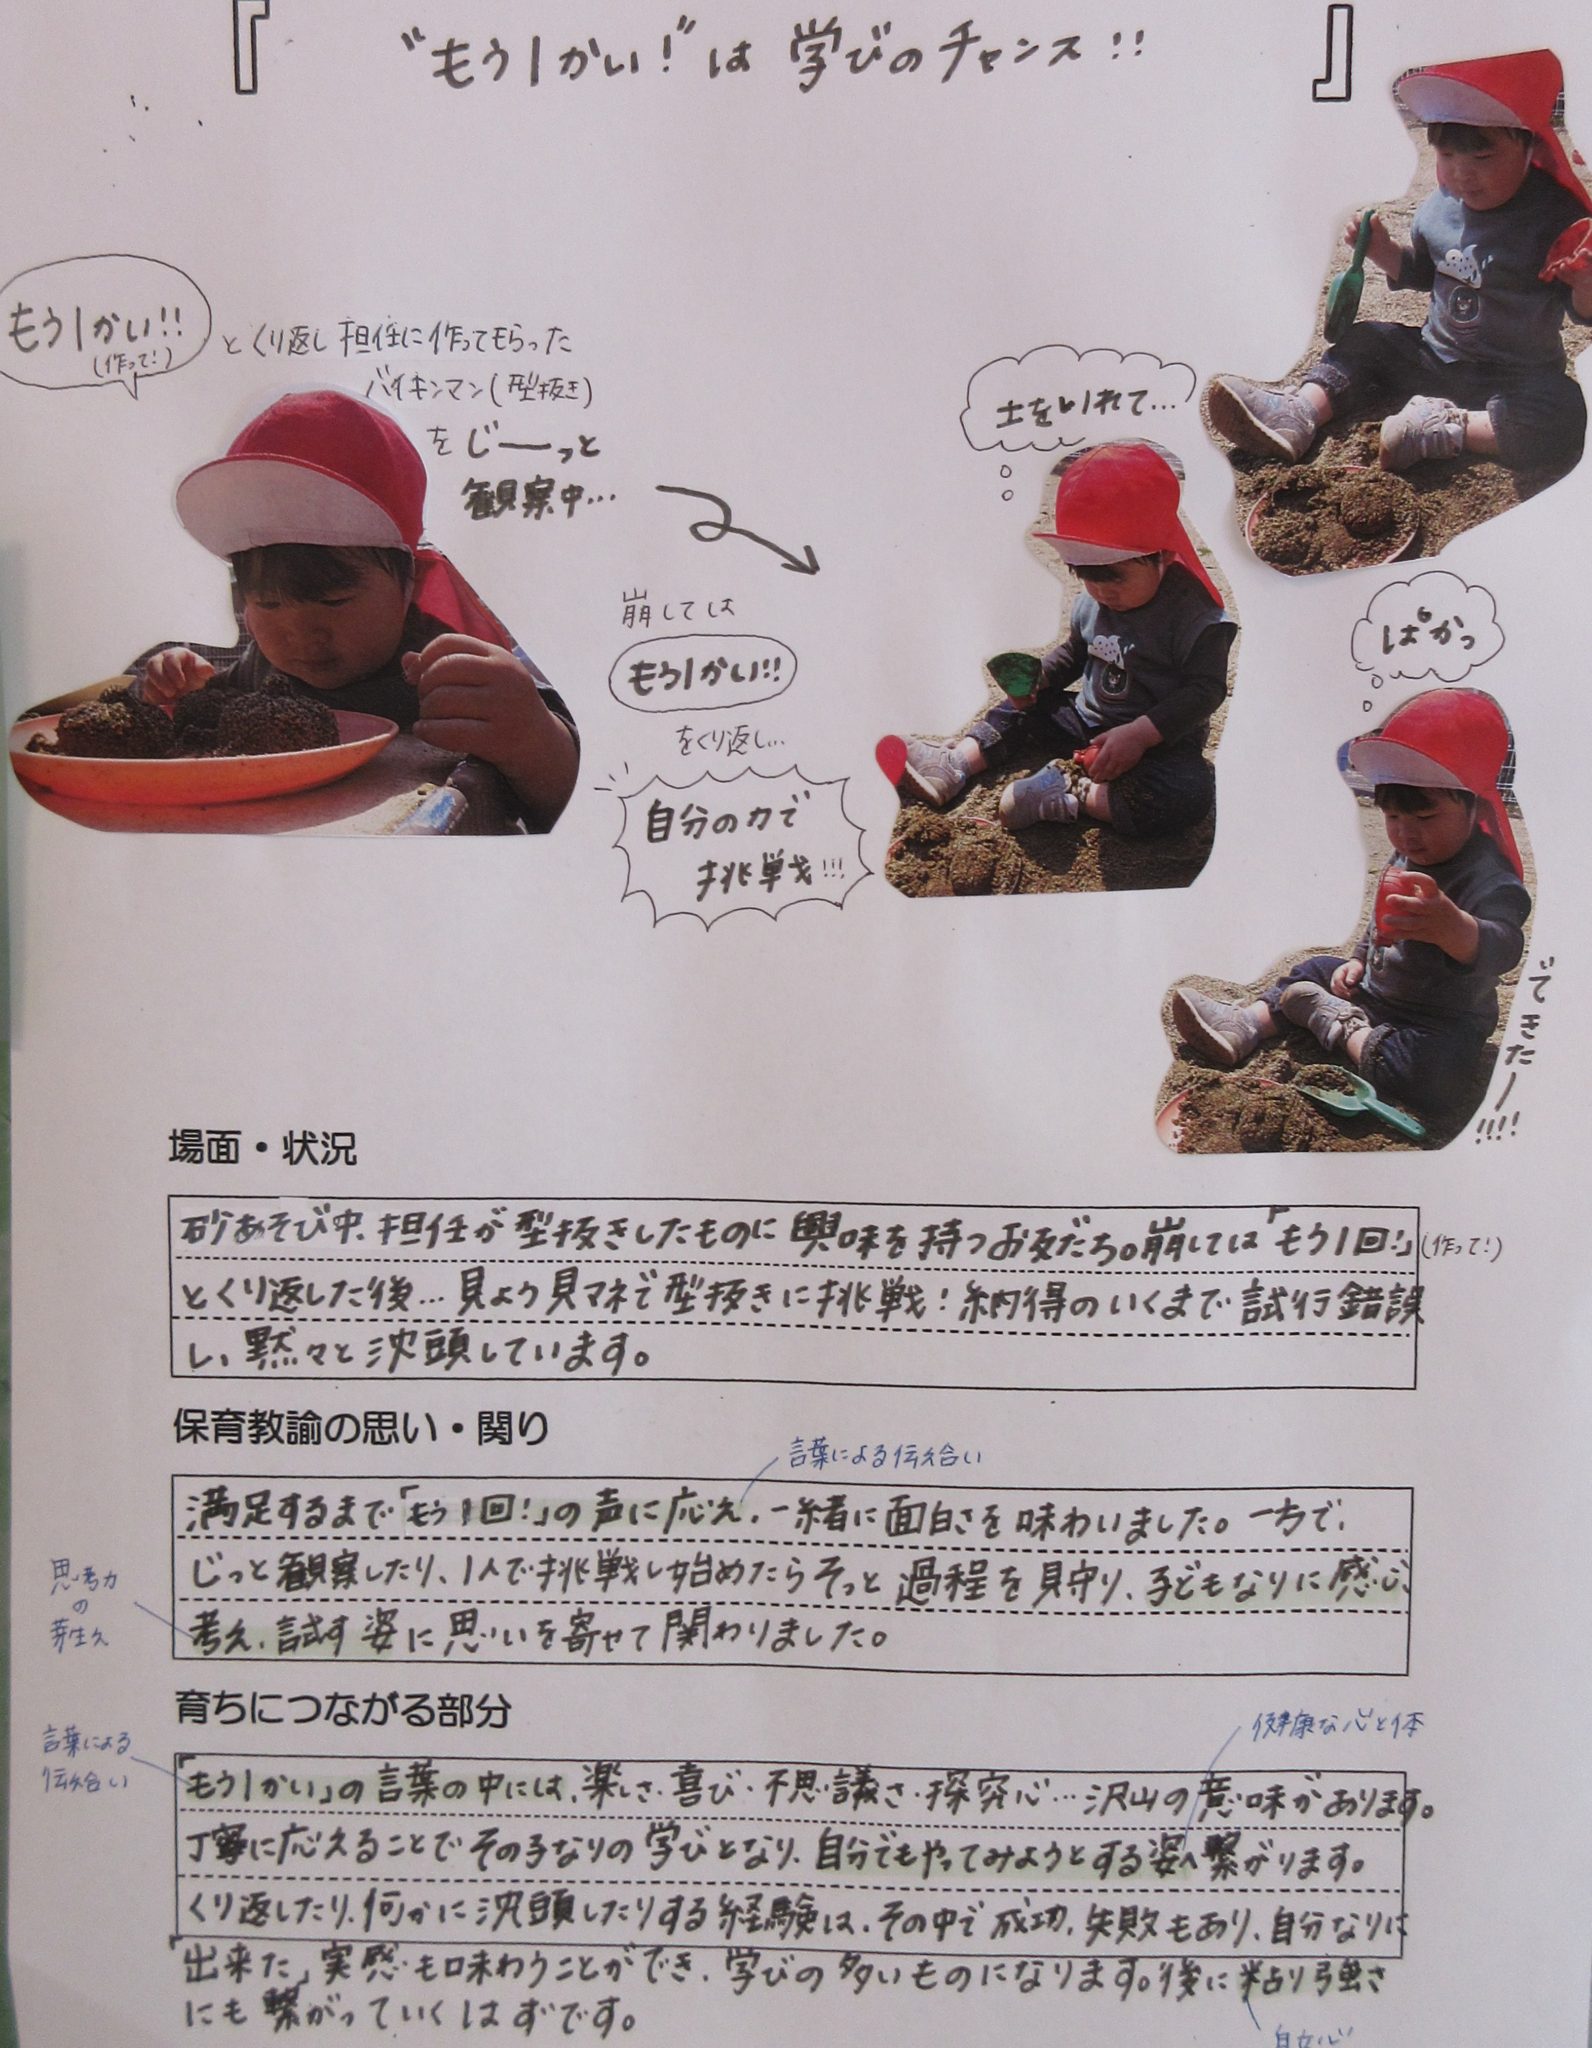 『 "もう1かい!"は 学びのチャンス!! 』
もう1かい!!
(作って!)
とくり返し担任に作ってもらった
バイキンマン(型抜き)
をじーっと
観察中…
崩しては
もう1かい!!
をくり返し…
自分の力で
挑戦!!!
土をいれて…
ぱかっ
できたー!!!!
場面・状況
砂あそび中、担任が型抜きしたものに興味を持つお友だち。崩しては「もう1回!」(作って!)
とくり返した後…見よう見マネで型抜きに挑戦!納得のいくまで試行錯誤
し、黙々と沈頭しています。
保育教諭の思い・関り
言葉による伝え合い
満足するまで「もう1回!」の声に応え、一緒に面白さを味わいました。一方で、
じっと観察したり、1人で挑戦し始めたらそっと過程を見守り、子どもなりに感じ、
考え、試す姿に思いを寄せて関わりました。
思考力
の
芽生え
育ちにつながる部分
健康な心と体
言葉による
伝え合い
「もう1かい」の言葉の中には、楽しさ・喜び・不思議さ・探究心…沢山の意味があります。
丁寧に応えることでその子なりの学びとなり、自分でもやってみようとする姿へ繋がります。
くり返したり、何かに沈頭したりする経験は、その中で成功、失敗もあり、自分なりに
「出来た」実感も味わうことができ、学びの多いものになります。後に粘り強さ
にも繋がっていくはずです。